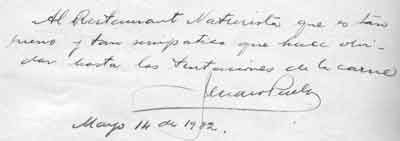 Al Restaurant Naturista que es tan
bueno y tan simpatico que hace olvi-
dar hasta las tentaciones de la carne
Jenaro Prieto
Mayo 14 de 1932.